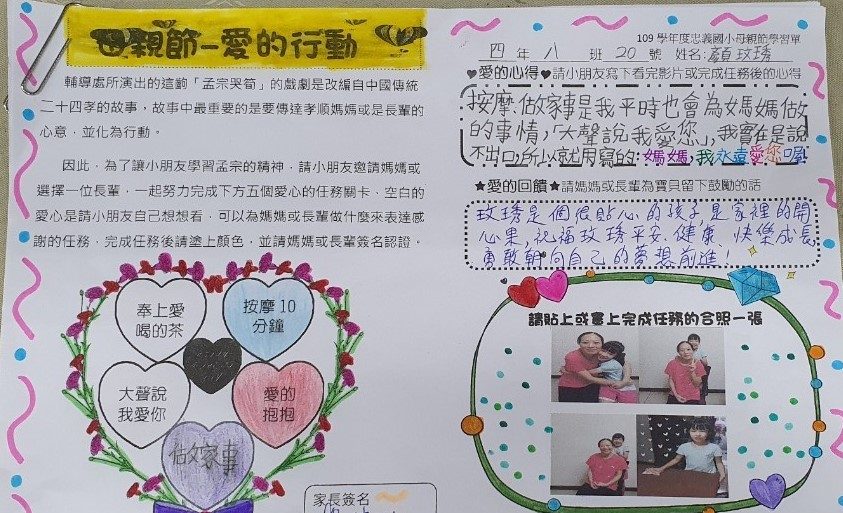 母親節–愛的行動
輔導處所演出的這齣「孟宗哭筍」的戲劇是改編自中國傳統
二十四孝的故事，故事中最重要的是要傳達孝順媽媽或是長輩的
心意，並化為行動。
因此，為了讓小朋友學習孟宗的精神，請小朋友邀請媽媽或
選擇一位長輩，一起努力完成下方五個愛心的任務關卡、空白的
愛心是請小朋友自己想想看，可以為媽媽或長輩做什麼來表達感
謝的任務，完成任務後請塗上顏色，並請媽媽或長輩簽名認證。
奉上愛
喝的茶
按摩 10
分鐘
大聲說
我愛你
愛的
抱抱
做家事
家長簽名
109 學年度忠義國小母親節學習單
四 年 八 班 20 號 姓名:顏玟琇
♥愛的心得♥請小朋友寫下看完影片或完成任務後的心得
按摩、做家事是我平時也會為媽媽做
的事情,「大聲說我愛您」,我實在是說
不出口,所以就用寫的:媽媽,我永遠愛您喔
★愛的回饋★請媽媽或長輩為寶貝留下鼓勵的話
玟琇是個很貼心的孩子,是家裡的開
心果,祝福玟琇平安、健康、快樂成長
勇敢朝向自己的夢想前進!
請貼上或畫上完成任務的合照一張